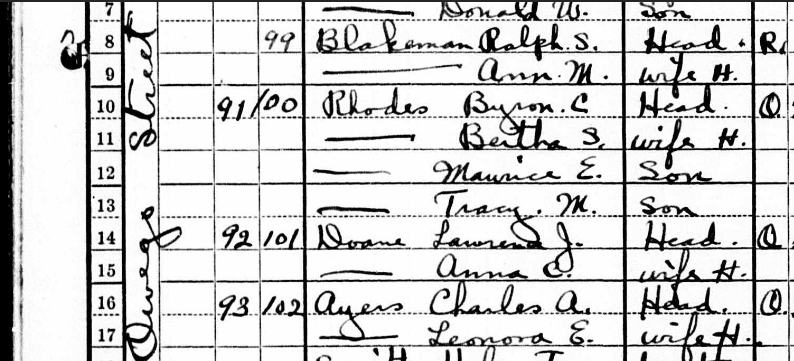 7 —— Donald W. Son
8 99 Blakeman Ralph S. Head. R.
9 —— Ann M. wife H.
10 91/00 Rhodes Byron. C Head. O
11 —— Bertha S. wife H.
12 —— Maurice E. Son
13 —— Tracy. M. Son
14 92 101 Doane Lawrence J. Head. O
15 —— Anna C. wife H.
16 93 102 Ayers Charles A. Head. O.
17 —— Leonora E. wife H.
Owego Street